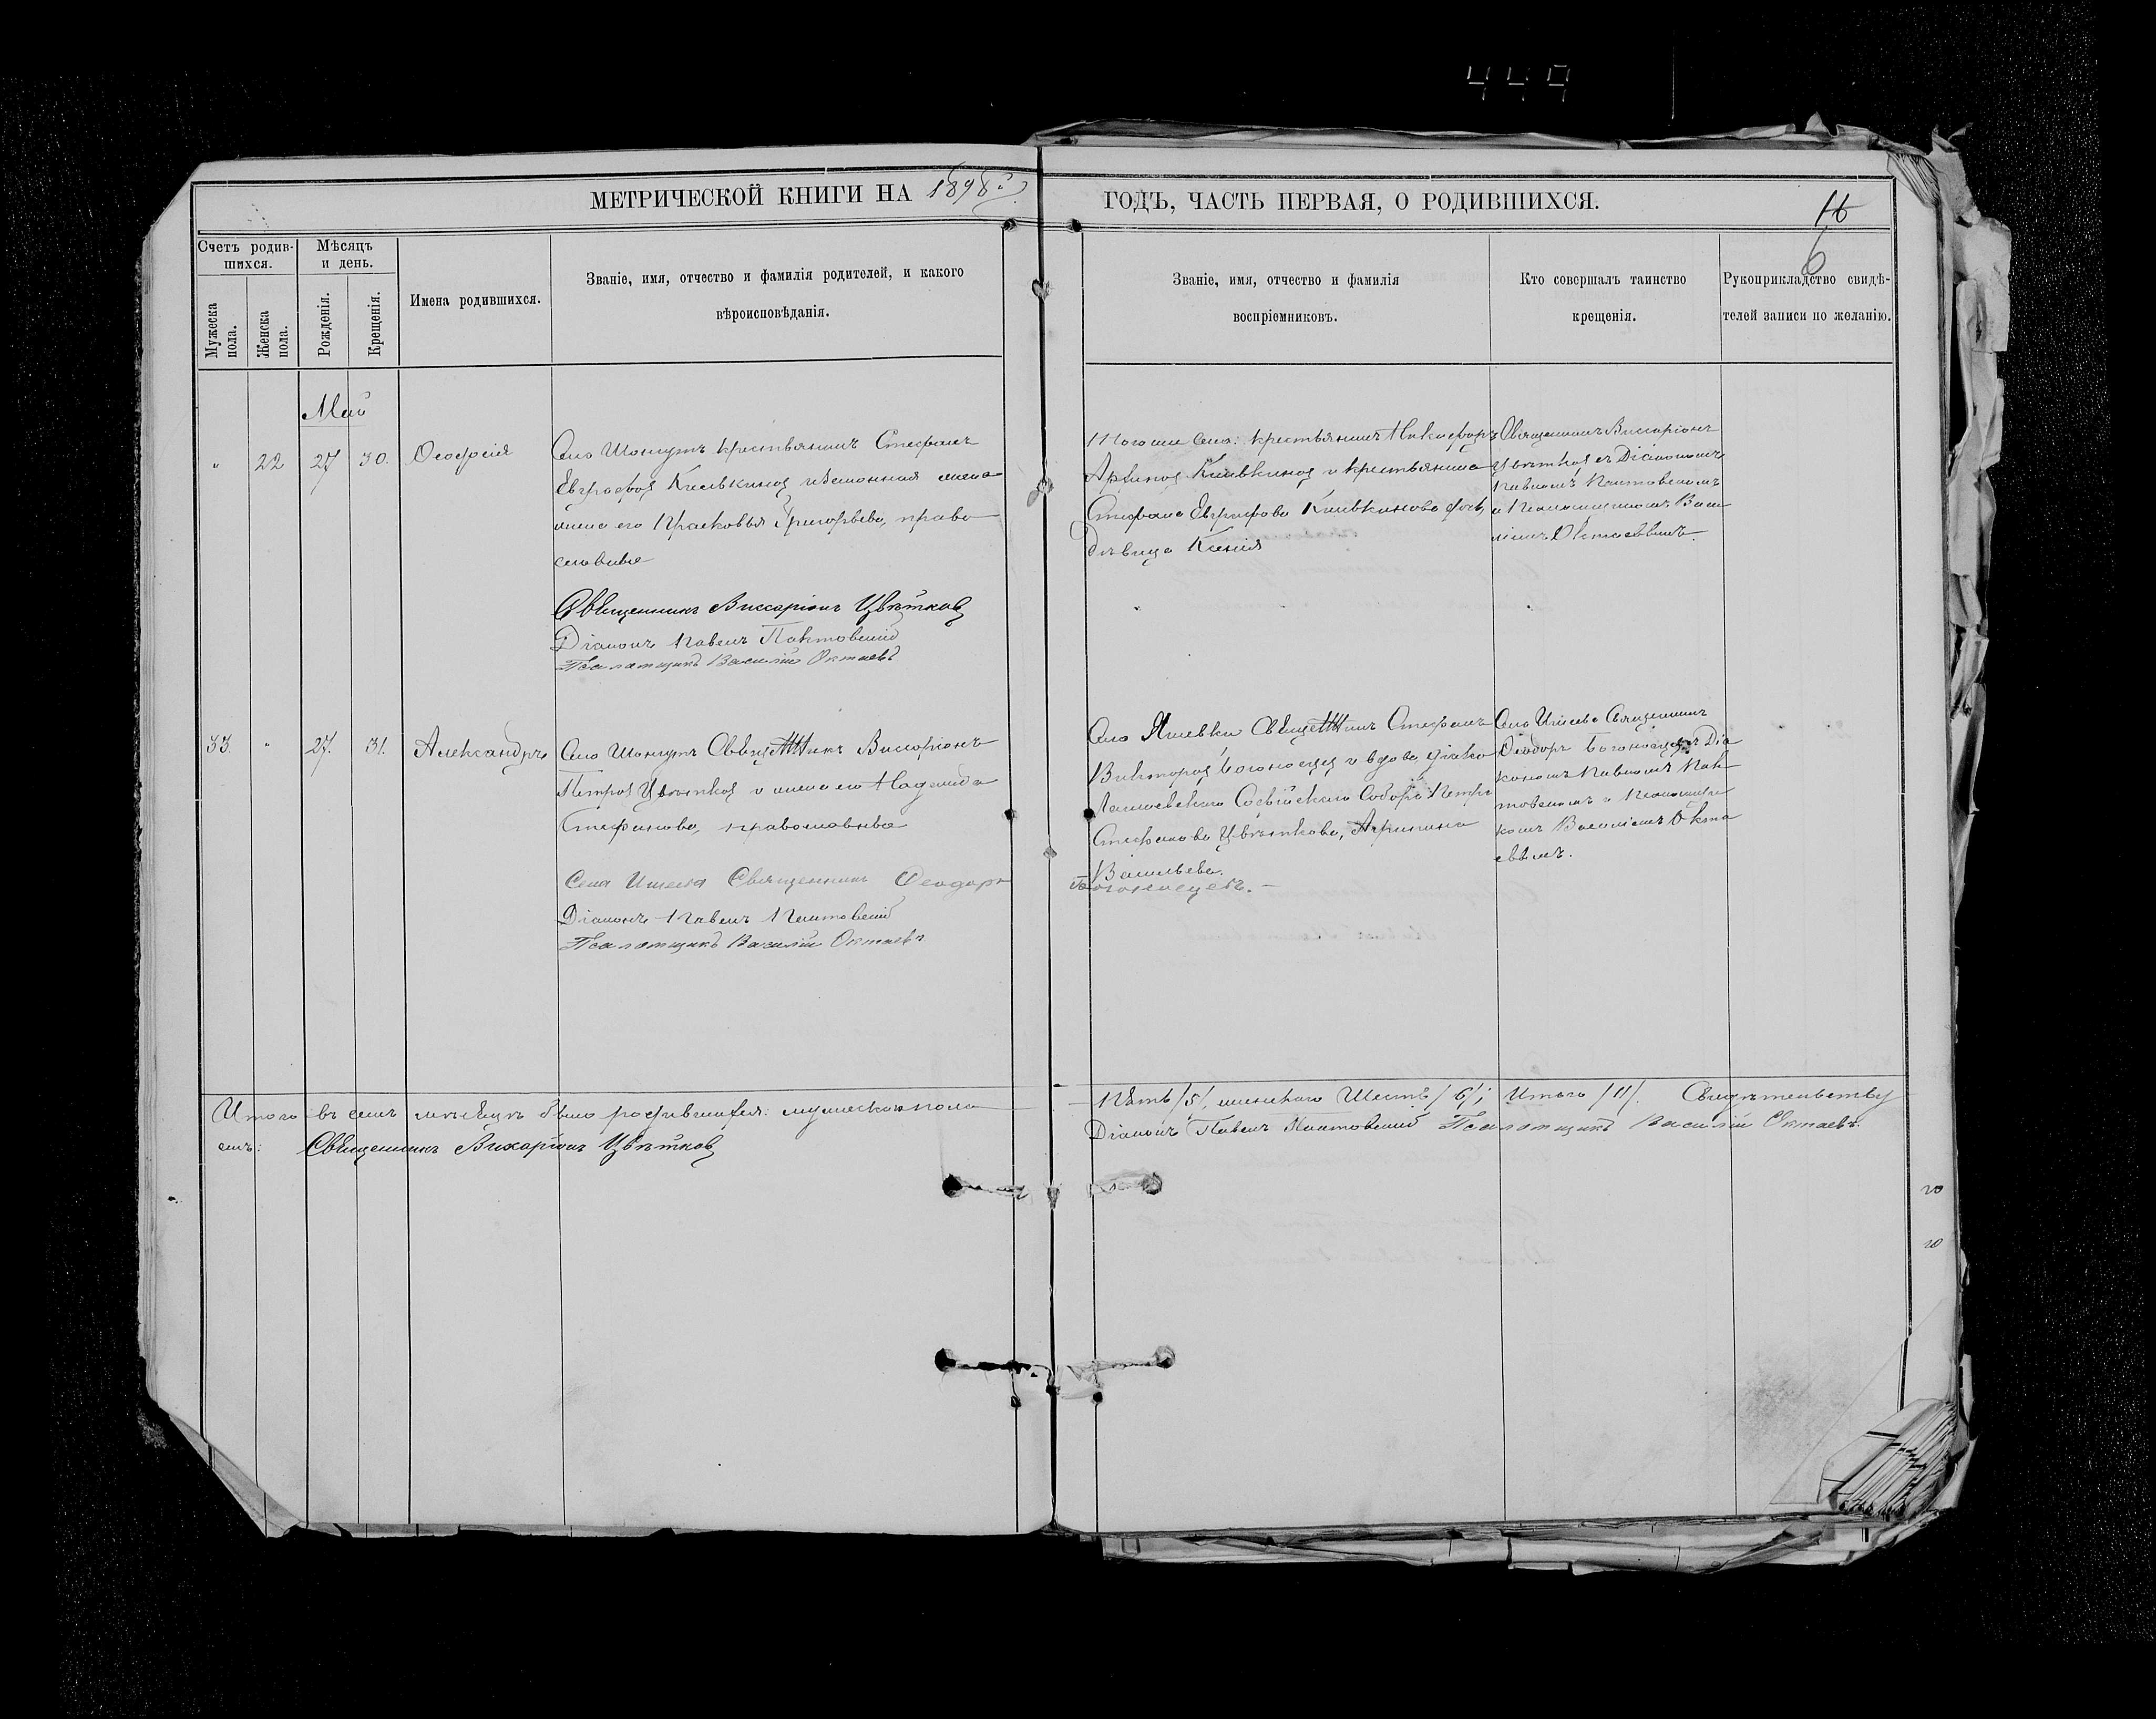 449
МЕТРИЧЕСКОЙ КНИГИ НА 1898й
ГОДЪ, ЧАСТЬ ПЕРВАЯ, О РОДИВШИХСЯ.
16
6
Счетъ родив-
шихся.
Мужеска
пола.
Женска
пола.
Мѣсяцъ
и день.
Рожденія.
Крещенія.
Имена родившихся.
Званіе, имя, отчество и фамилія родителей, и какого
вѣроисповѣданія.
Званіе, имя, отчество и фамилія
воспріемниковъ.
Кто совершалъ таинство
крещенія.
Рукоприкладство свидѣ-
телей записи по желанію.
Май
" 22 27 30.
Села крестьянинъ Стефанъ
законная жена
его Прасковья Григорьева, право
славные
Священникъ Виссаріонъ Цвѣтковъ
Діаконъ Павелъ
Псаломщикъ Василій Октаевъ
Того же села: крестьянинъ Никифоръ
Архипов и крестьянина
Стефана
дѣвица Ксенія
Священникъ Виссаріонъ
Цвѣтков съ Діакономъ
Павломъ
и Псаломщикомъ Васи
ліемъ Октаевымъ.
33. " 27. 31. Александръ
Села Священникъ Виссаріонъ
Петров Цвѣтков и жена его Надежда
Стефанова, православные
Села Священникъ Ѳеодоръ
Богоносцевъ.
Діаконъ Павелъ
Псаломщикъ Василій Октаевъ
Села Священникъ Стефанъ
Викторов Богоносцев и вдова діакона
Лаишевскаго Софійскаго Собора Петра
Стефанова Цвѣткова, Агрипина
Васильева.
Села Священникъ
Ѳеодоръ Богоносцевъ Діа
кономъ Павломъ
и Псаломщи
комъ Василіемъ Окта
евымъ.
Итого въ семъ мѣсяцѣ было родившихся: мужеска пола
Пять /5/, женскаго Шесть /6/; Итого /11/. Свидѣтельству
емъ: Священникъ Виссаріонъ Цвѣтковъ
Діаконъ Павелъ Псаломщикъ Василій Октаевъ.